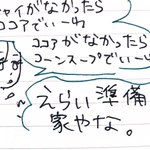 チャイがなかったら
ココアでいーわ
ココアがなかったら
コーンスープでいーし
えらい準備
家やな。